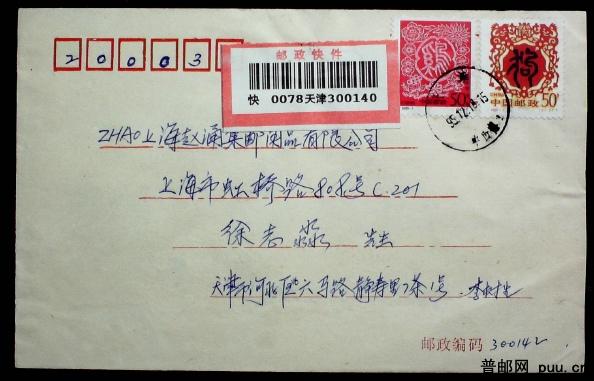 200030
邮政快件
快 0078天津300140
鸡
50分
中国邮政
狗
中国邮政 50分
95.12.18.15
ZHAO上海赵涌集邮用品有限公司
上海市虹桥路808号C.201
徐志 先生
天津市河北区六马路静寿里7条1号 李树生
邮政编码 300142
普邮网 puu.cn